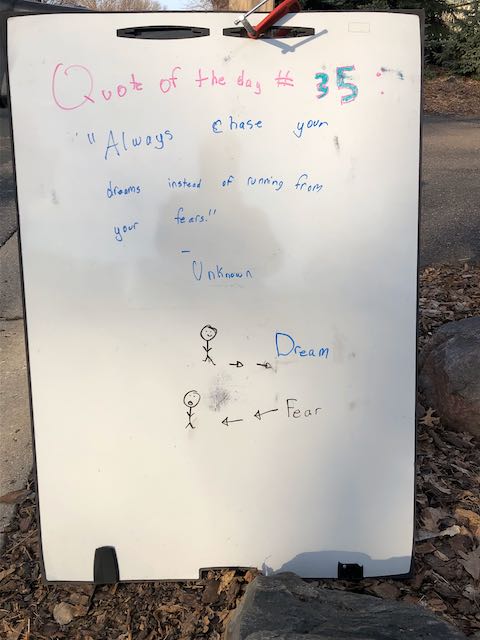 Quote of the day # 35:
"Always chase your
dreams instead of running from
your fears."
- Unknown
Dream
Fear